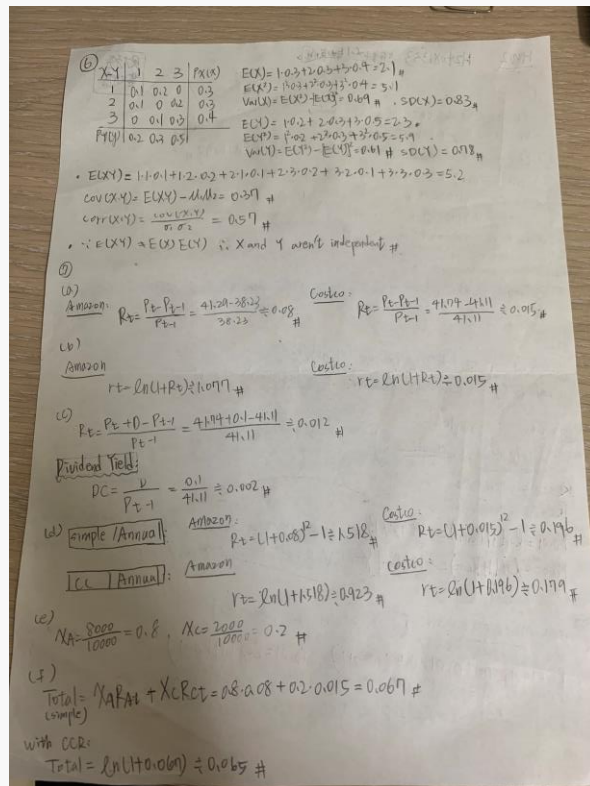 ⑥
X\Y 1 2 3 Px(x)
1 0.1 0.2 0 0.3
2 0.1 0 0.2 0.3
3 0 0.1 0.3 0.4
PY(y) 0.2 0.3 0.5
E(X)=1·0.3+2·0.3+3·0.4=2.1 #
E(X²)=1²·0.3+2²·0.3+3²·0.4=5.1
Var(X)=E(X²)-[E(X)]²=0.69 #, SD(X)=0.83 #
E(Y)=1·0.2+2·0.3+3·0.5=2.3 #
E(Y²)=1²·0.2+2²·0.3+3²·0.5=5.9
Var(Y)=E(Y²)-[E(Y)]²=0.61 # SD(Y)=0.78 #
· E(XY)=1·1·0.1+1·2·0.2+2·1·0.1+2·3·0.2+3·2·0.1+3·3·0.3=5.2
cov(X,Y)=E(XY)-M1M2=0.37 #
corr(X,Y)=cov(X,Y)/σ1σ2=0.57 #
· ∵ E(XY)≠E(X)E(Y) ∴ X and Y aren't independent #
⑦
(a)
Amazon: Rt=(Pt-Pt-1)/Pt-1=(41.29-38.23)/38.23≒0.08 #
Costco: Rt=(Pt-Pt-1)/Pt-1=(41.74-41.11)/41.11≒0.015 #
(b)
Amazon
rt=ln(1+Rt)≒1.077 #
Costco:
rt=ln(1+Rt)≒0.015 #
(c)
Rt=(Pt+D-Pt-1)/Pt-1=(41.74+0.1-41.11)/41.11≒0.012 #
Dividend Yield:
DC=D/Pt-1=0.1/41.11≒0.002 #
(d) Simple/Annual:
Amazon: Rt=(1+0.08)¹²-1≒1.518 #
Costco: Rt=(1+0.015)¹²-1≒0.196 #
CC/Annual: Amazon
rt=ln(1+1.518)≒0.923 #
Costco:
rt=ln(1+0.196)≒0.179 #
(e)
XA=8000/10000=0.8, XC=2000/10000=0.2 #
(f)
Total=XARAt+XCRCt=0.8·0.08+0.2·0.015=0.067 #
(simple)
with CCR:
Total=ln(1+0.067)≒0.065 #